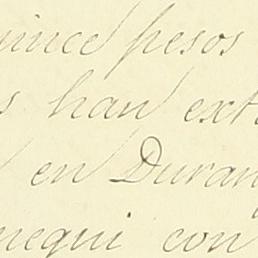 uince pesos
s han ext
en Duran
nequi con